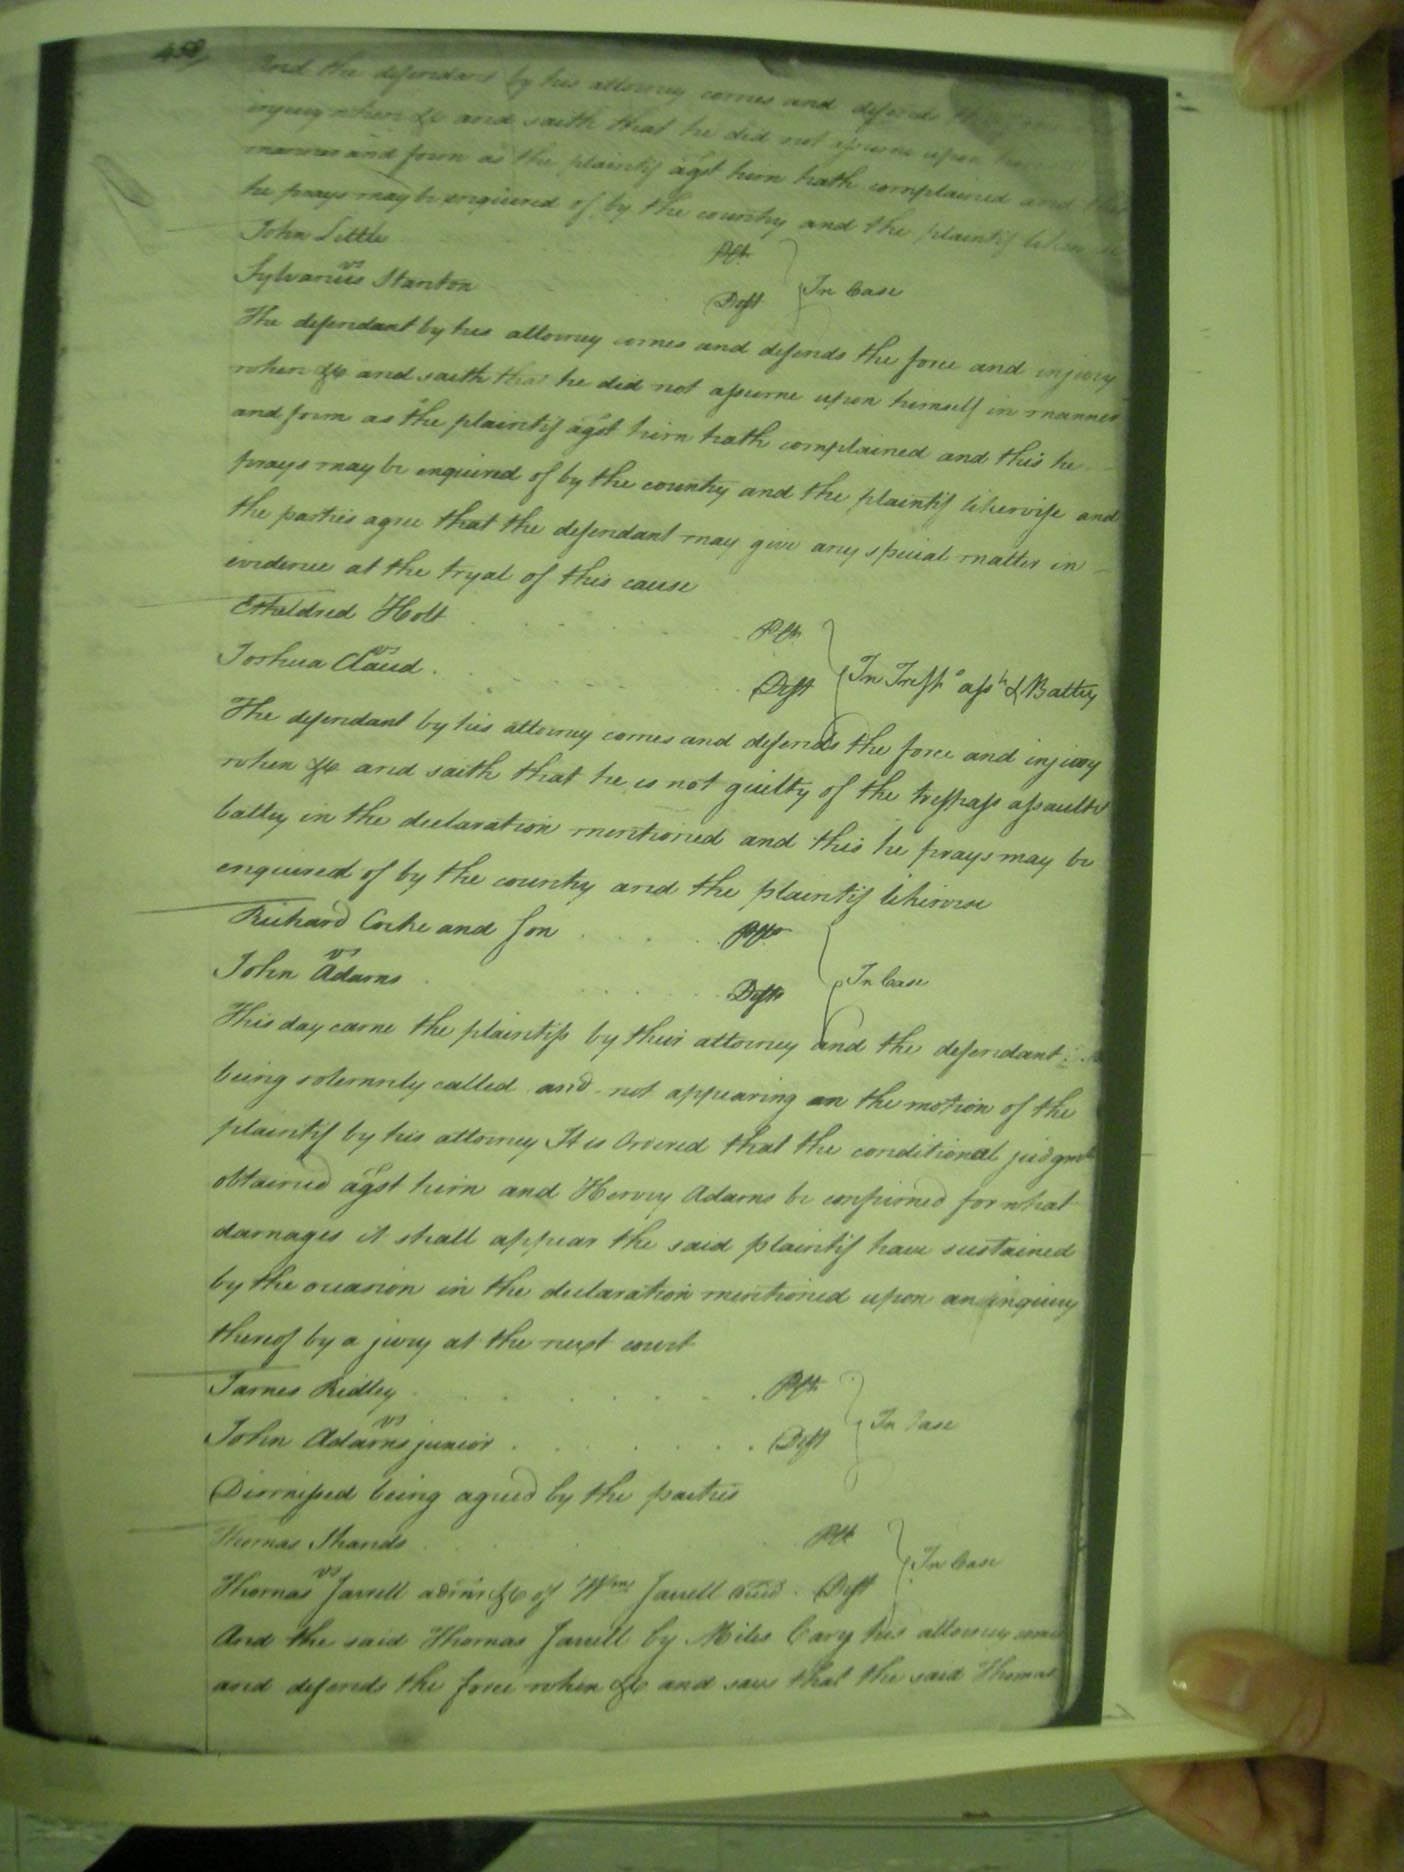 And the defendant by his attorney comes and defends the
injury when &c and saith that he did not assume upon
manner and form as the plaintif agst him hath complained and this
he prays may be enquired of by the country and the plaintif likewise
John Little Plt
vs
Sylvanus Stanton Deft In Case
The defendant by his attorney comes and defends the force and injury
when &c and saith that he did not assume upon himself in manner
and form as the plaintif agst him hath complained and this he
prays may be enquired of by the country and the plaintif likewise and
the parties agree that the defendant may give any special matter in
evidence at the tryal of this cause
Etheldred Holt Plt
vs
Joshua Claud Deft In Tresps asst & Battry
The defendant by his attorney comes and defends the force and injury
when &c and saith that he is not guilty of the trespass assault &
battry in the declaration mentioned and this he prays may be
enquired of by the country and the plaintif likewise
Richard Cocke and Son Plts
vs
John Adams Deft In Case
This day came the plaintifs by their attorney and the defendant
being solemnly called and not appearing on the motion of the
plaintif by his attorney It is Ordered that the conditional judgmt
obtained agst him and Henry Adams be confirmed for what
damages it shall appear the said plaintif have sustained
by the occasion in the declaration mentioned upon an inquiry
thereof by a jury at the next court
James Ridley Plt
vs
John Adams junior Deft In Case
Dismissed being agreed by the parties
Thomas Shands Plt
vs
Thomas Jarrell admr &c of Wm Jarrell decd Deft In Case
And the said Thomas Jarrell by Miles Cary his attorney comes
and defends the force when &c and says that the said Thomas